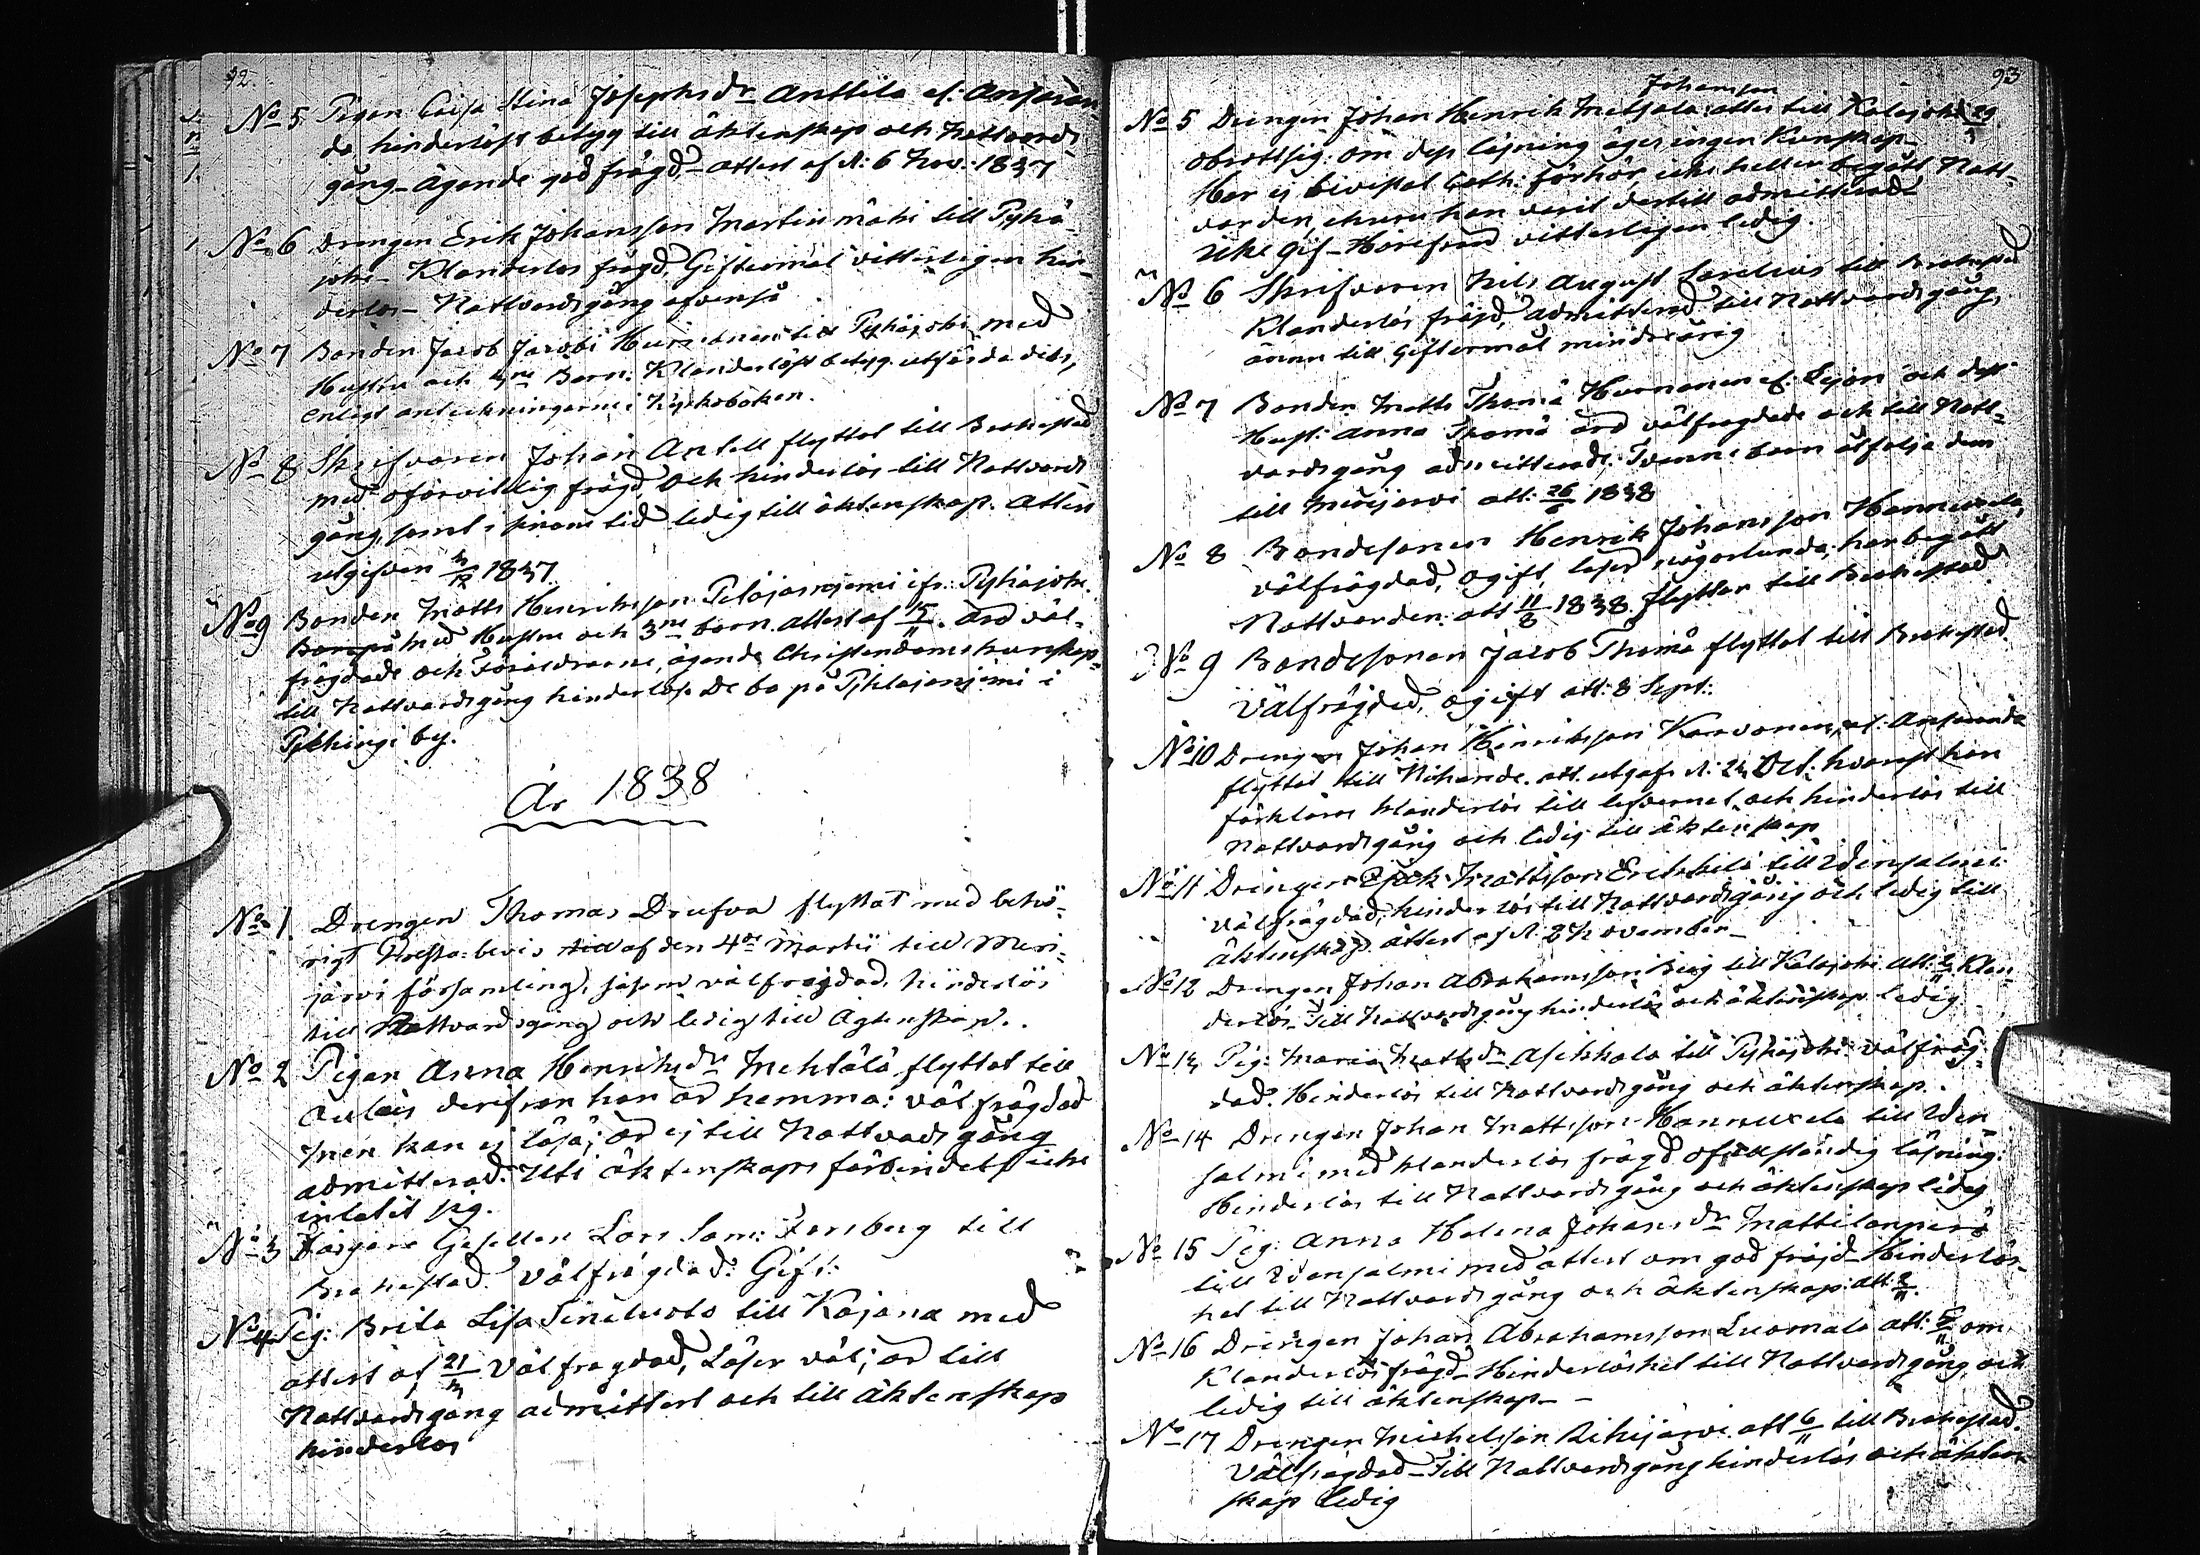 92.
No 5 Pigan Caisa Stina Josephsdr Anttila el: Anjäran-
da hinderlöst betyg till äktenskap och Nattvards
gång. Ägande god frägd. Attest af d: 6 Nov: 1837
No 6 Drengen Erik Johansson Martinmäki till Pyhä-
joki. Klanderlös frägd, Giftermål vitterligen hin-
derlös. Nattvardsgång äfvenså
No 7 Bonden Jacob Jacobi till Pyhäjoki med
Hustru och Barn. Klanderlöst betyg utfärdades,
enligt anteckningarne i Kyrkoboken.
No 8 Skrifvaren Johan Antell flyttat till Brahestad
med oförvitlig frägd och hinderlös till Nattvards
gång, samt i sinom tid ledig till äktenskap. Attest
utgifven 4/12 1837.
No 9 Bonden Matts Henriksson Pilajanjemi i fr: Pyhäjoki.
med Hustru och 3ne barn. attest af 15/11. äro väl-
frägdade och Föräldrarne, ägande Christendoms kunskap
till Nattvardsgång hinderlöse De bo på i
by.
År 1838
No 1. Drengen Thomas Drufva flyttat med behö-
rigt Presta-bevis af den 4de Martii till Meri-
järvi församling, såsom välfrägdad, hinderlös
till Nattvardsgång och ledig till Äktenskap.
No 2 Pigan Anna Henriksdr Mehtälä flyttat till
derifrån hon är hemma: välfrägdad
men kan ej läsa; är ej till Nattvardsgång
admitterad. Uti äktenskaps förbindelse icke
inlåtit sig.
No 3 Färgare Gesellen Lars Sam: Forsberg till
Brahestad. Välfrägdad. Gift:
No 4 Pig: Brita Lisa till Kajana med
attest af 21/4 Välfrägdad, Läser väl; är till
Nattvardsgång admittert och till äktenskap
hinderlös
93
Johansson
No 5 Drengen Johan Henrik Metsälä: attes till Kalajoki 29
obrottslig: om dess läsning äges ingen Kunskap
Har ej bevistat Cath: förhör, icke heller begått Natt-
varden, ehuru han varit dertill admitterad
icke Gif- vitterligen ledig.
No 6 Skrifvaren Nils August Sarelius till Brahestad
Klanderlös frägd, admitterad till Nattvardsgång,
ännu till Giftermål minderårig
No 7 Bonden Matts Thomä el. och dess
Hust: Anna Thomä äro välfrägdade och till Natt-
vardsgång admitterade. Tvenne barn åtfölja dem
till Merijärvi att: 26/6 1838
No 8 Bondesonen Henrik Johansson Hannuxela,
välfrägdad, ogift, läser någorlunda, har begått
Nattvarden: att 11/8 1838. flyttar till Brahestad
No 9 Bondesonen Jacob Thomä flyttat till Brahestad
Välfrägdad, ogift att: 8 Sept:
No 10 Drengen Johan Henriksson Karvonen, el. Anjäranda
flyttat till att. utgafs d: 24 Oct. hvarest han
förklaras klanderlös till lefvernet och hinderlös till
Nattvardsgång och ledig till äktenskap
No 11 Drengen Erik Mattsson Erikkilä till Idensalmi
välfrägdad, hinderlös till Nattvardsgång och ledig till
äktenskap. attest af d. 2 November
No 12 Drengen Johan Abrahamsson till Kalajoki att: Klan-
derlös. Till Nattvardsgång hinderlös och äktenskap ledig
No 13 Pig: Maria Mattsdr Asikkala till Pyhäjoki välfräg-
dad. Hinderlös till Nattvardsgång och äktenskap.
No 14 Drengen Johan Mattsson Hannuxela till Iden-
salmi med klanderlös frägd läsning:
Hinderlös till Nattvardsgång och äktenskap ledig
No 15 Pig: Anna Helena Johansdr Mattilanperä
till Idensalmi med attest om god fräjd Hinderlös-
het till Nattvardsgång och äktenskap att: 2/11.
No 16 Drengen Johan Abrahamsson Luomala att: 5/11 om
Klanderlös frägd Hinderlöshet till Nattvardsgång och
ledig till äktenskap
No 17 Drengen Michelsson att 6/11 till Brahestad.
Välfrägdad Till Nattvardsgång hinderlös och äkten-
skap ledig